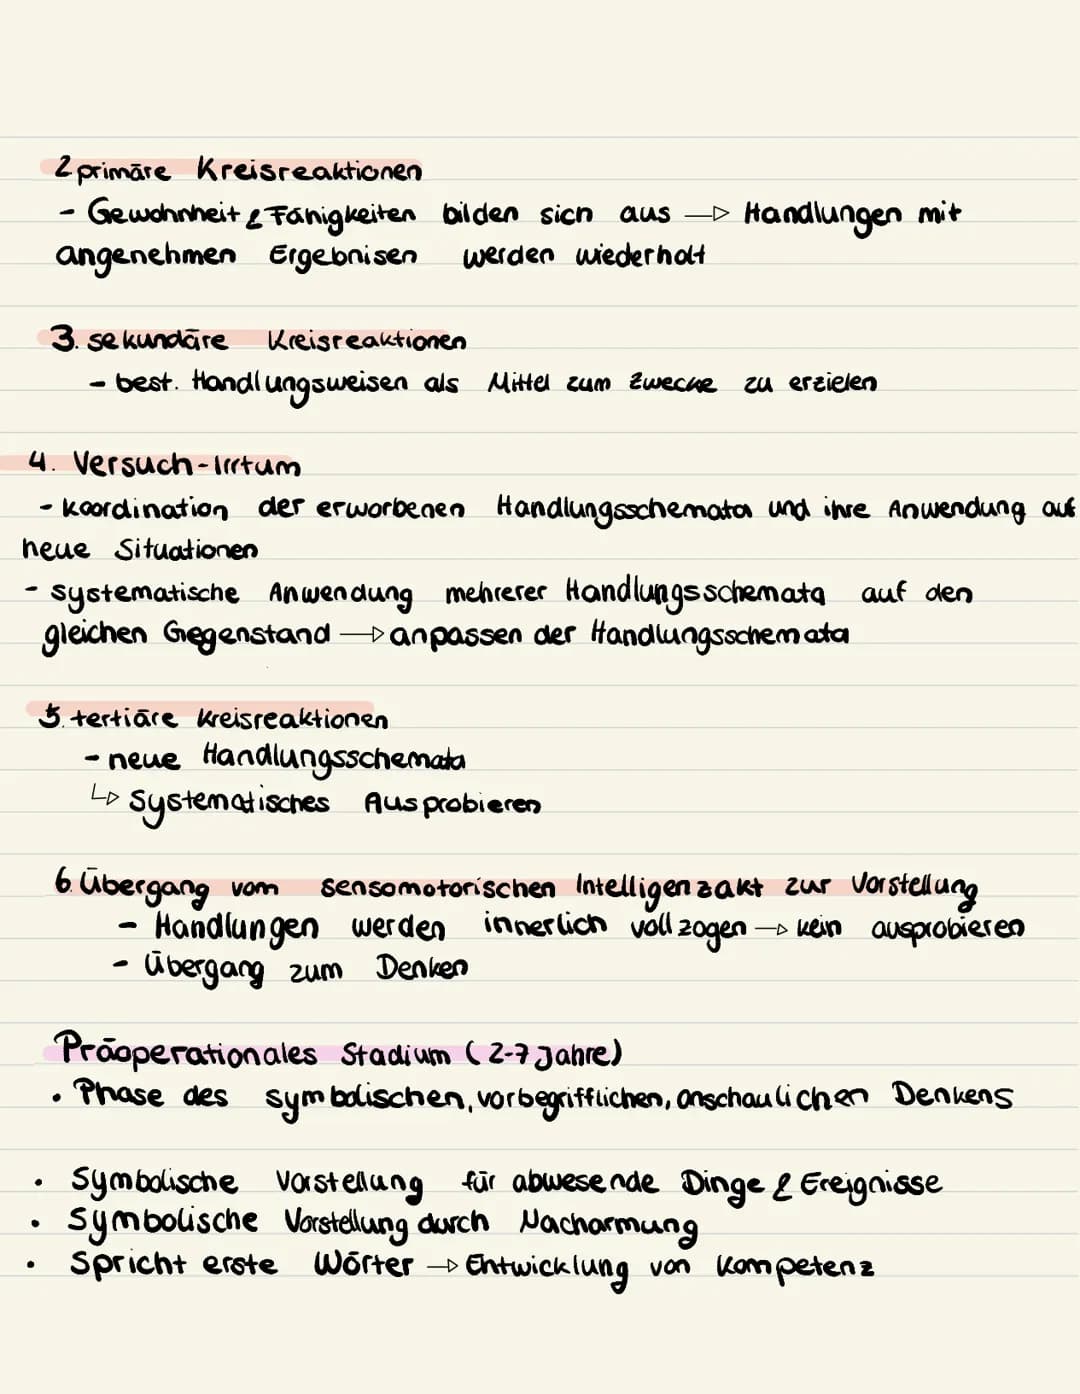 2 primäre Kreisreaktionen
- Gewohnheit & Fähigkeiten bilden sich aus → Handlungen mit
angenehmen Ergebnisen werden wiederholt
3. sekundäre Kreisreaktionen
- best. Handlungsweisen als Mittel zum Zwecke zu erzielen
4. Versuch-Irrtum
- koordination der erworbenen Handlungsschemata und ihre Anwendung auf
neue Situationen
- systematische Anwendung mehrerer Handlungsschemata auf den
gleichen Gegenstand → anpassen der Handlungsschemata
5. tertiäre Kreisreaktionen
- neue Handlungsschemata
↳ Systematisches Ausprobieren
6. Übergang vom sensomotorischen Intelligenzakt zur Vorstellung
- Handlungen werden innerlich vollzogen → kein ausprobieren
- Übergang zum Denken
Präoperationales Stadium (2-7 Jahre)
• Phase des symbolischen, vorbegrifflichen, anschaulichen Denkens
• Symbolische Vorstellung für abwesende Dinge & Ereignisse
• Symbolische Vorstellung durch Nachahmung
• Spricht erste Wörter → Entwicklung von Kompetenz